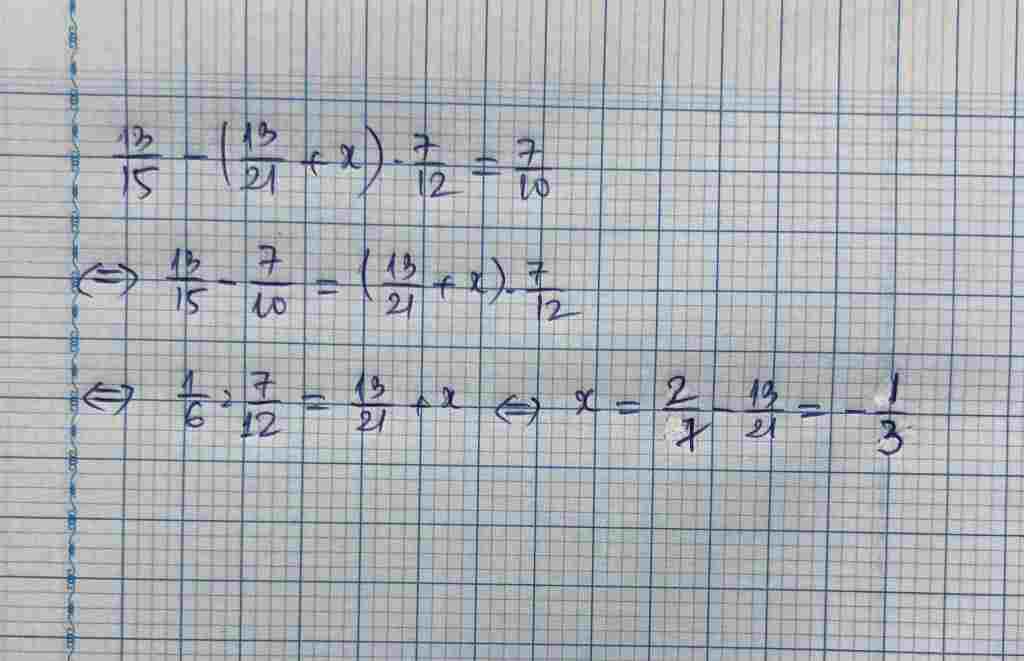 13/15 - (13/21 + x) . 7/12 = 7/10
⇔ 13/15 - 7/10 = (13/21 + x) . 7/12
⇔ 1/6 : 7/12 = 13/21 + x ⇔ x = 2/7 - 13/21 = - 1/3